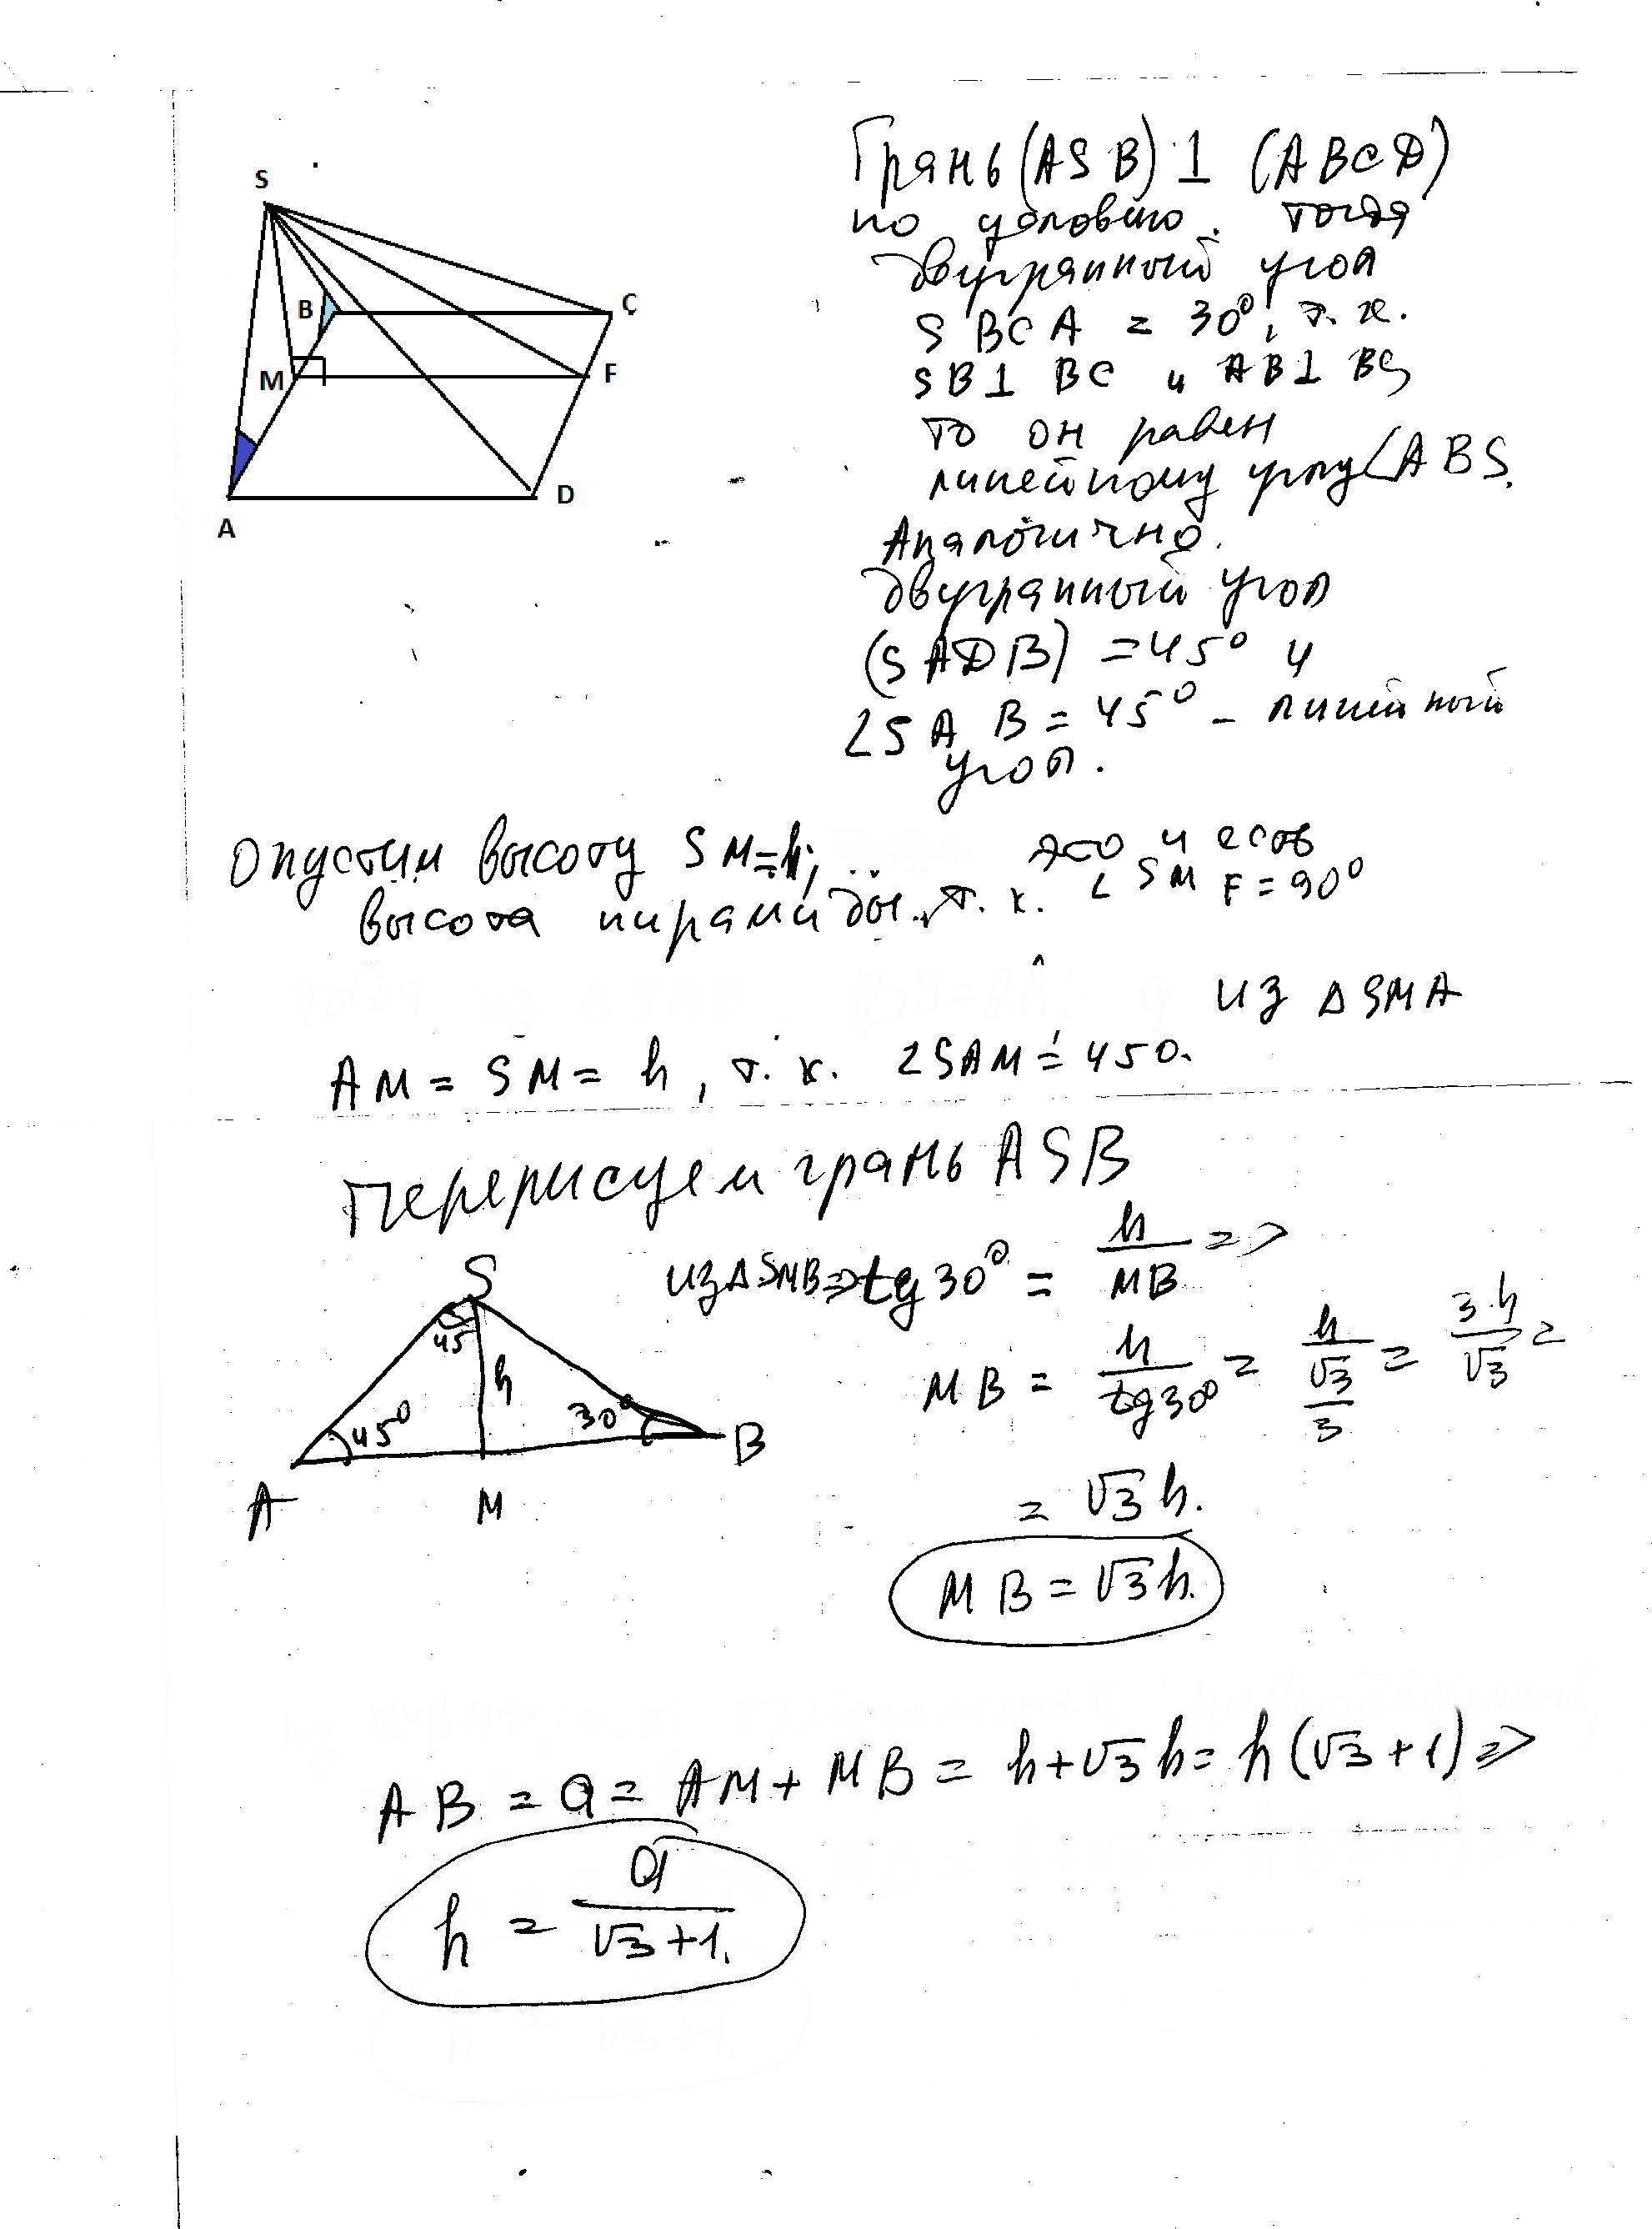 S
B
C
M
F
A
D
Грань (ASB) ⊥ (ABCD)
по условию. тогда
двугранный угол
SBCA = 30°, т.к.
SB ⊥ BC и AB ⊥ BC
то он равен
линейному углу ∠ABS.
Аналогично.
двугранный угол
(SADB) = 45° и
∠SAB = 45° - линейный
угол.
Опустим высоту SM=h; это и есть
высота пирамиды., т.к. ∠SMF = 90°
из △SMA
AM = SM = h, т.к. ∠SAM = 450.
Перерисуем грань ASB
S
45
h
45°
30°
A
M
B
из △SMB => tg30° = h/MB =>
MB = h/tg30° = h/(√3/3) = 3·h/√3 =
= √3h.
MB = √3h.
AB = a = AM + MB = h+√3h = h(√3+1) =>
h = a/(√3+1).